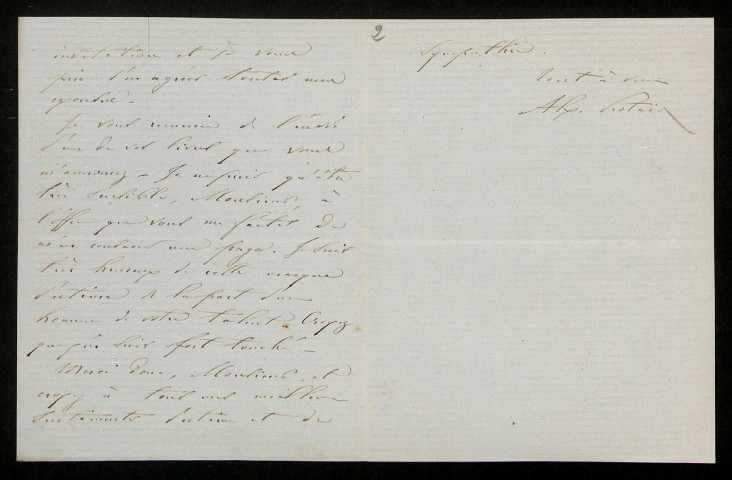 2
invitation et je vous
prie d'en agréer toutes mes
excuses.
Je vous remercie de l'envoi
d'un de vos livres que vous
m'annoncez - Je ne puis qu'être
très sensible, Monsieur, à
l'offre que vous me faites de
m'en consacrer une page. Je suis
très heureux de cette marque
d'estime de la part d'un
homme de votre talent. Croyez
que j'en suis fort touché -
Merci donc, Monsieur, et
croyez à tous mes meilleurs
sentiments d'estime et de
sympathie.
Tout à vous
Alx. Protais